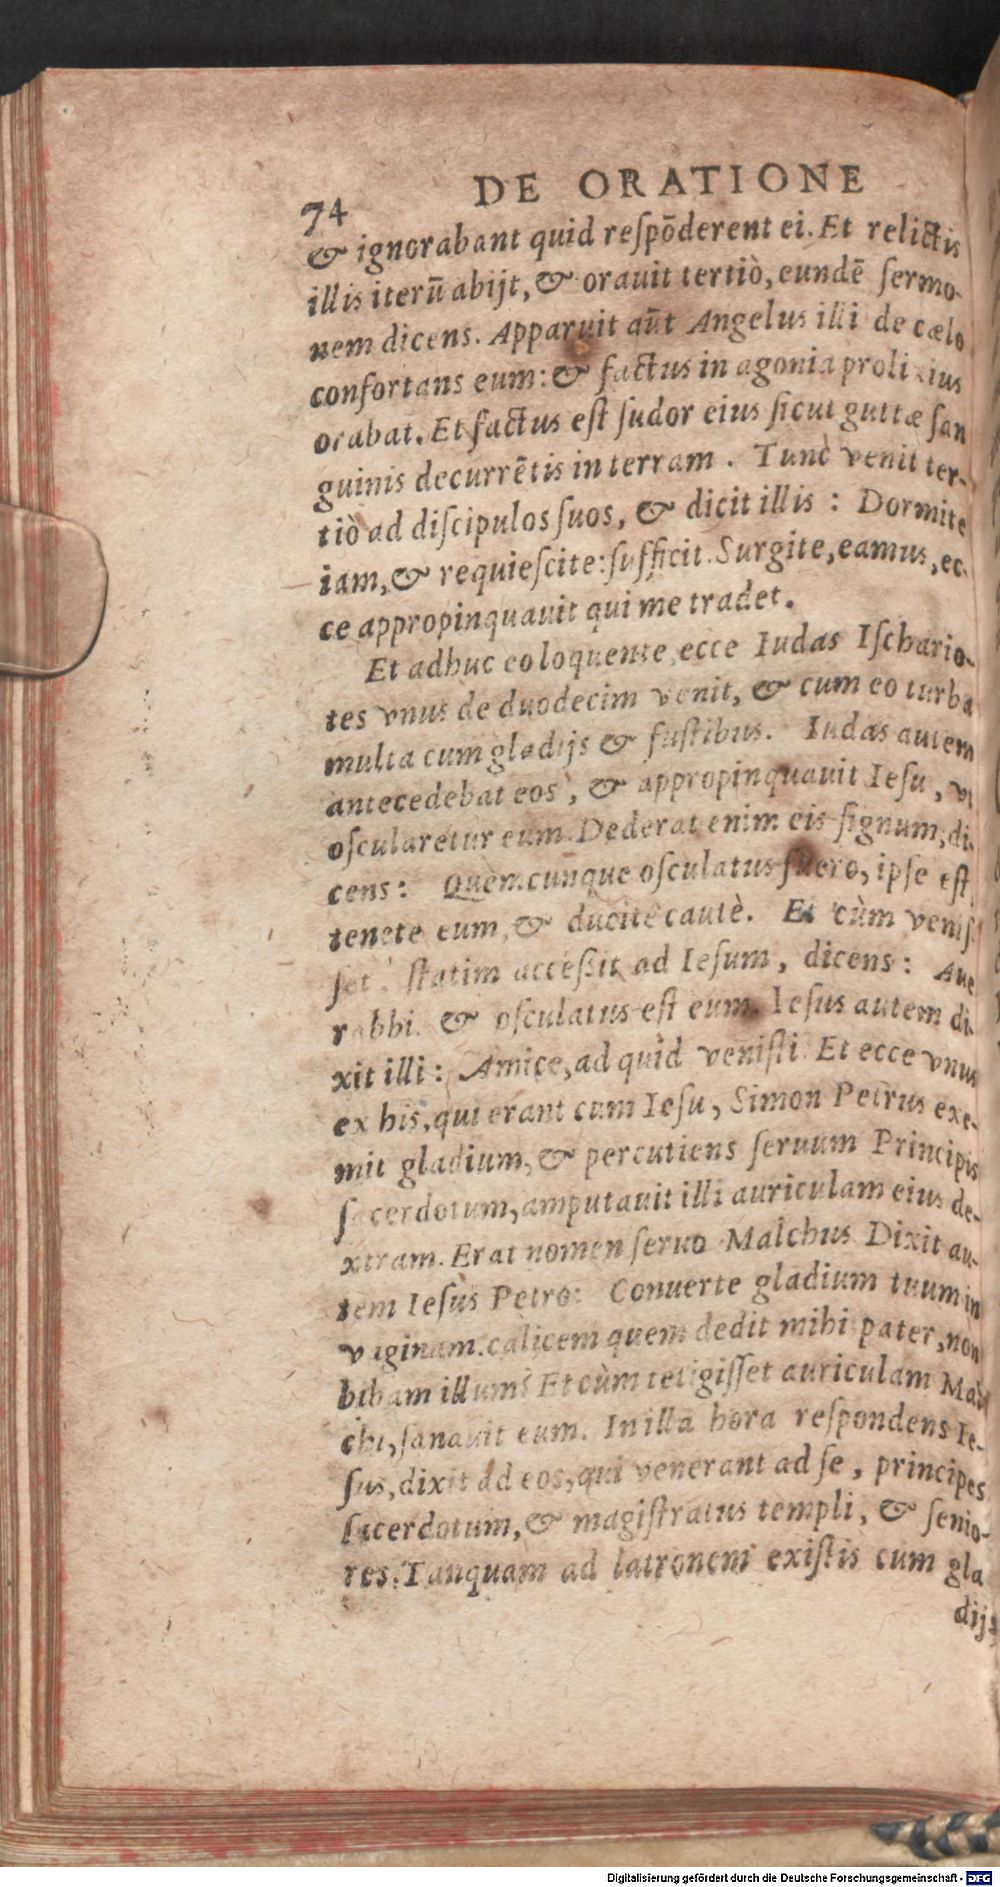 74 DE ORATIONE
& ignorabant quid reſpōderent ei. Et relictis
illis iterū abijt, & orauit tertiò, eundē ſermo-
nem dicens. Apparuit aūt Angelus illi de cælo
confortans eum: & factus in agonia prolixius
orabat. Et factus eſt ſudor eius ſicut guttæ ſan
guinis decurrētis in terram. Tunc venit ter-
tiò ad diſcipulos ſuos, & dicit illis: Dormite
iam, & requieſcite: ſufficit. Surgite, eamus, ec-
ce appropinquauit qui me tradet.
Et adhuc eo loquente, ecce Iudas Iſchario-
tes vnus de duodecim venit, & cum eo turba
multa cum gladijs & fuſtibus. Iudas autem
antecedebat eos, & appropinquauit Ieſu, vt
oſcularetur eum. Dederat enim eis ſignum, di-
cens: Quemcunque oſculatus fuero, ipſe eſt,
tenete eum, & ducite cautè. Et cùm veniſ-
ſet, ſtatim acceßit ad Ieſum, dicens: Aue
rabbi. & oſculatus eſt eum. Ieſus autem di-
xit illi: Amice, ad quid veniſti. Et ecce vnus
ex his, qui erant cum Ieſu, Simon Petrus exe-
mit gladium, & percutiens ſeruum Principis
ſacerdotum, amputauit illi auriculam eius de-
xtram. Erat nomen ſeruo Malchus Dixit au-
tem Ieſus Petro: Conuerte gladium tuum in
vaginam. calicem quem dedit mihi pater, non
bibam illum? Et cùm tetigiſſet auriculam Mal
chi, ſanauit eum. In illa hora reſpondens Ie-
ſus, dixit ad eos, qui venerant ad ſe, principes
ſacerdotum, & magiſtratus templi, & ſenio-
res. Tanquam ad latronem exiſtis cum gla
dijs
Digitalisierung gefördert durch die Deutsche Forschungsgemeinschaft - DFG